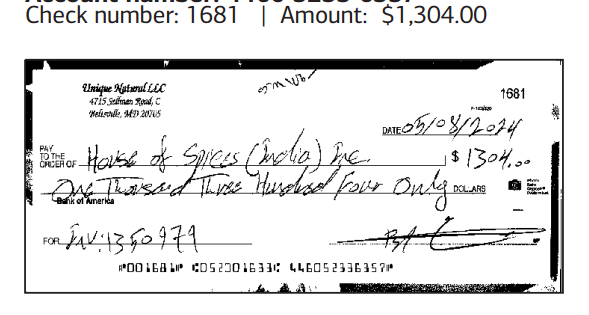 Check number: 1681 | Amount: $1,304.00
Unique Natural LLC
4715 Sellman Road, C
Beltsville, MD 20705
1681
DATE 05/08/2024
PAY TO THE ORDER OF House of Spices (India) Inc. $ 1304.00
One Thousand Three Hundred Four Only DOLLARS
Bank of America
FOR INV:1350979
⑈001681⑈ ⑆052001633⑆ 446052336357⑈